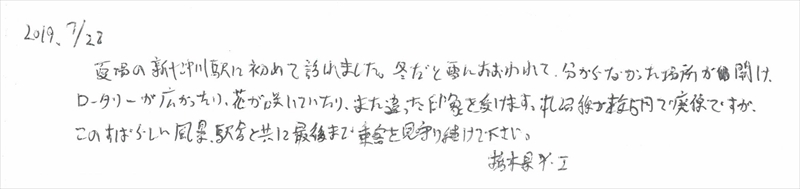 2019. 7/28
夏場の新十津川駅に初めて訪れました。冬だと雪におおわれて、分からなかった場所が開け、
ロータリーが広がったり、花が咲いていたり、また違った印象を受けます。札沼線が来5月で廃線ですが、
このすばらしい風景、駅舎と共に最後まで乗客を見守り続けて下さい。
栃木県 Y.I